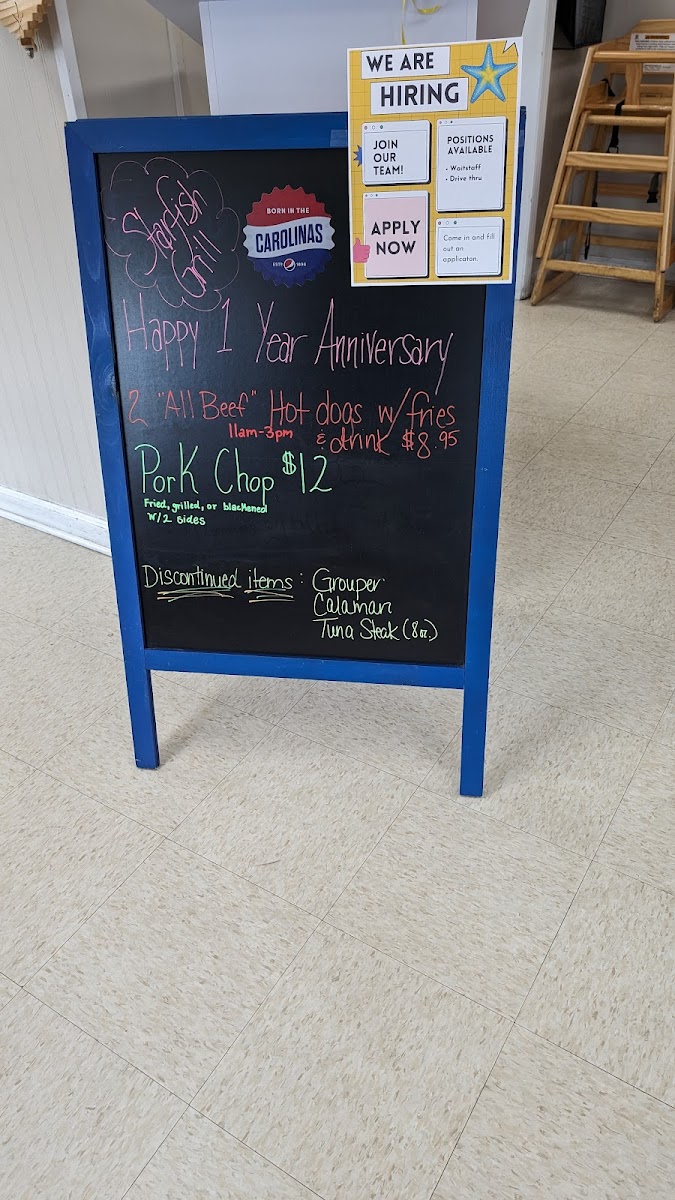 WE ARE
HIRING
JOIN
OUR
TEAM!
POSITIONS
AVAILABLE
• Waitstaff
• Drive thru
APPLY
NOW
Come in and fill
out an
applicaton.
Starfish
Grill
BORN IN THE
CAROLINAS
ESTD 1898
Happy 1 Year Anniversary
2 "All Beef" Hot dogs w/ fries
11am-3pm & drink $8.95
Pork Chop $12
Fried, grilled, or blackened
w/2 sides
Discontinued items: Grouper
Calamari
Tuna Steak (8oz.)